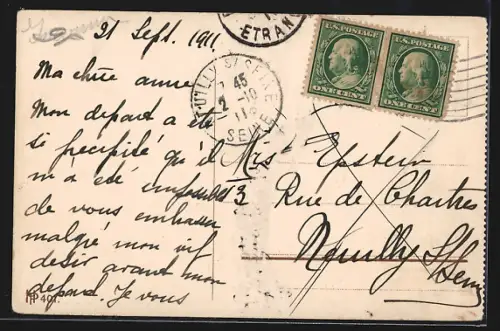 21 Sept. 1911.
Ma chère amie
Mon depart a été
si precipité qu'il
m'a été impossible
de vous embrasser
malgré mon vif
desir avant mon
depart. Je vous
HP 401.
ETRAN
NEUILLY S/ SEINE
45
2 -10
11
SEINE
U.S. POSTAGE
ONE CENT
U.S. POSTAGE
ONE CENT
Mrs Epstein
3 Rue de Chartres
Neuilly S/ Seine